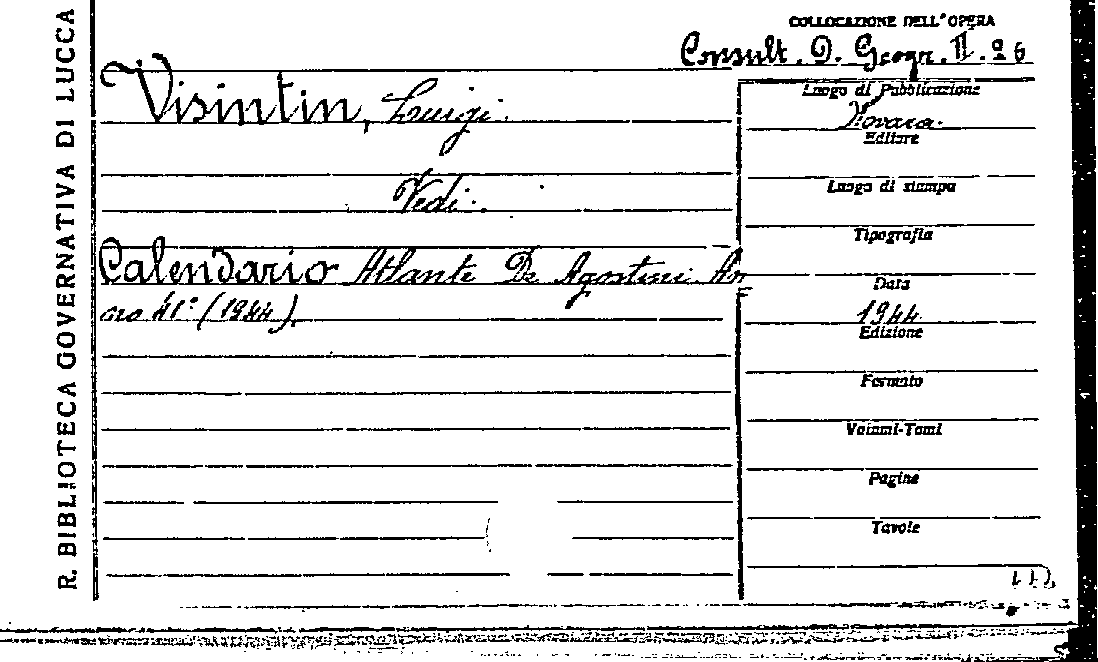 R. BIBLIOTECA GOVERNATIVA DI LUCCA
COLLOCAZIONE DELL'OPERA
Consult. D. Geogr. II. 26
Visintin, Luigi.
Vedi:
Calendario Atlante De Agostini. An
no 41° (1944).
Luogo di Pubblicazione
Novara.
Editore
Luogo di stampa
Tipografia
Data
1944
Edizione
Formato
Volumi-Tomi
Pagine
Tavole